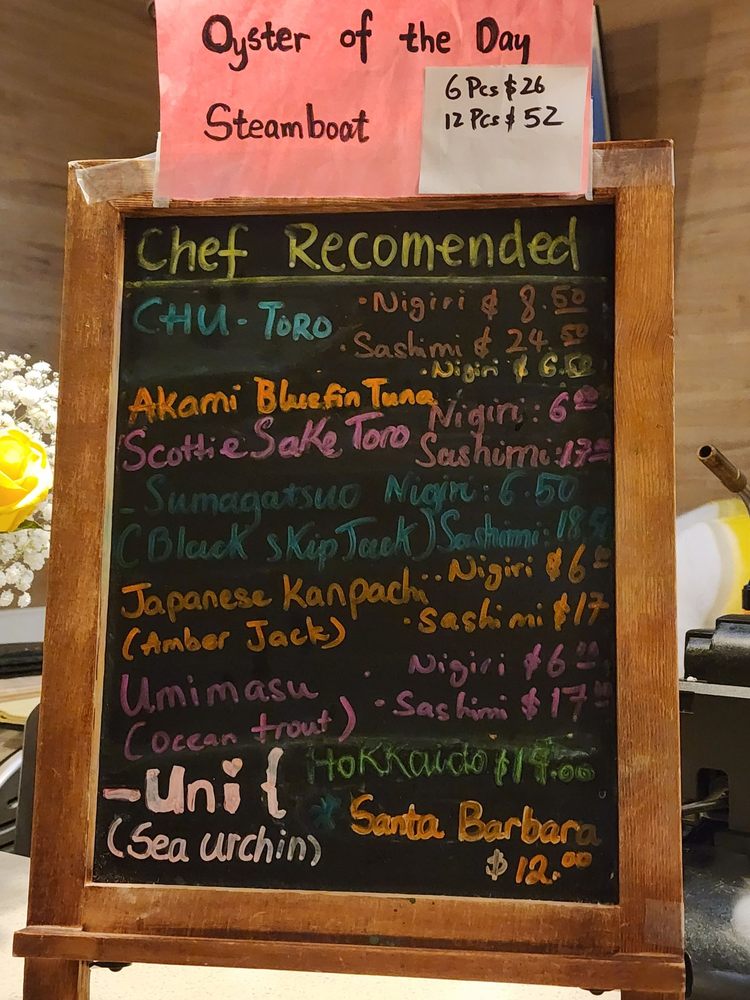 Oyster of the Day
Steamboat
6 Pcs $26
12 Pcs $52
Chef Recomended
CHU-TORO
·Nigiri $ 8.50
·Sashimi $ 24.50
·Nigiri $ 6.50
Akami Bluefin Tuna
Scottie Sake Toro
Nigiri: 6.00
Sashimi: 17.00
-Sumagatsuo Nigiri: 6.50
(Black skip Jack) Sashimi: 18.50
Japanese Kanpachi
(Amber Jack)
··Nigiri $6.00
·Sashimi $17
Umimasu
(ocean trout)
·Nigiri $6.00
·Sashimi $17.00
-Uni {
(Sea urchin)
Hokkaido
* Santa Barbara
$12.00